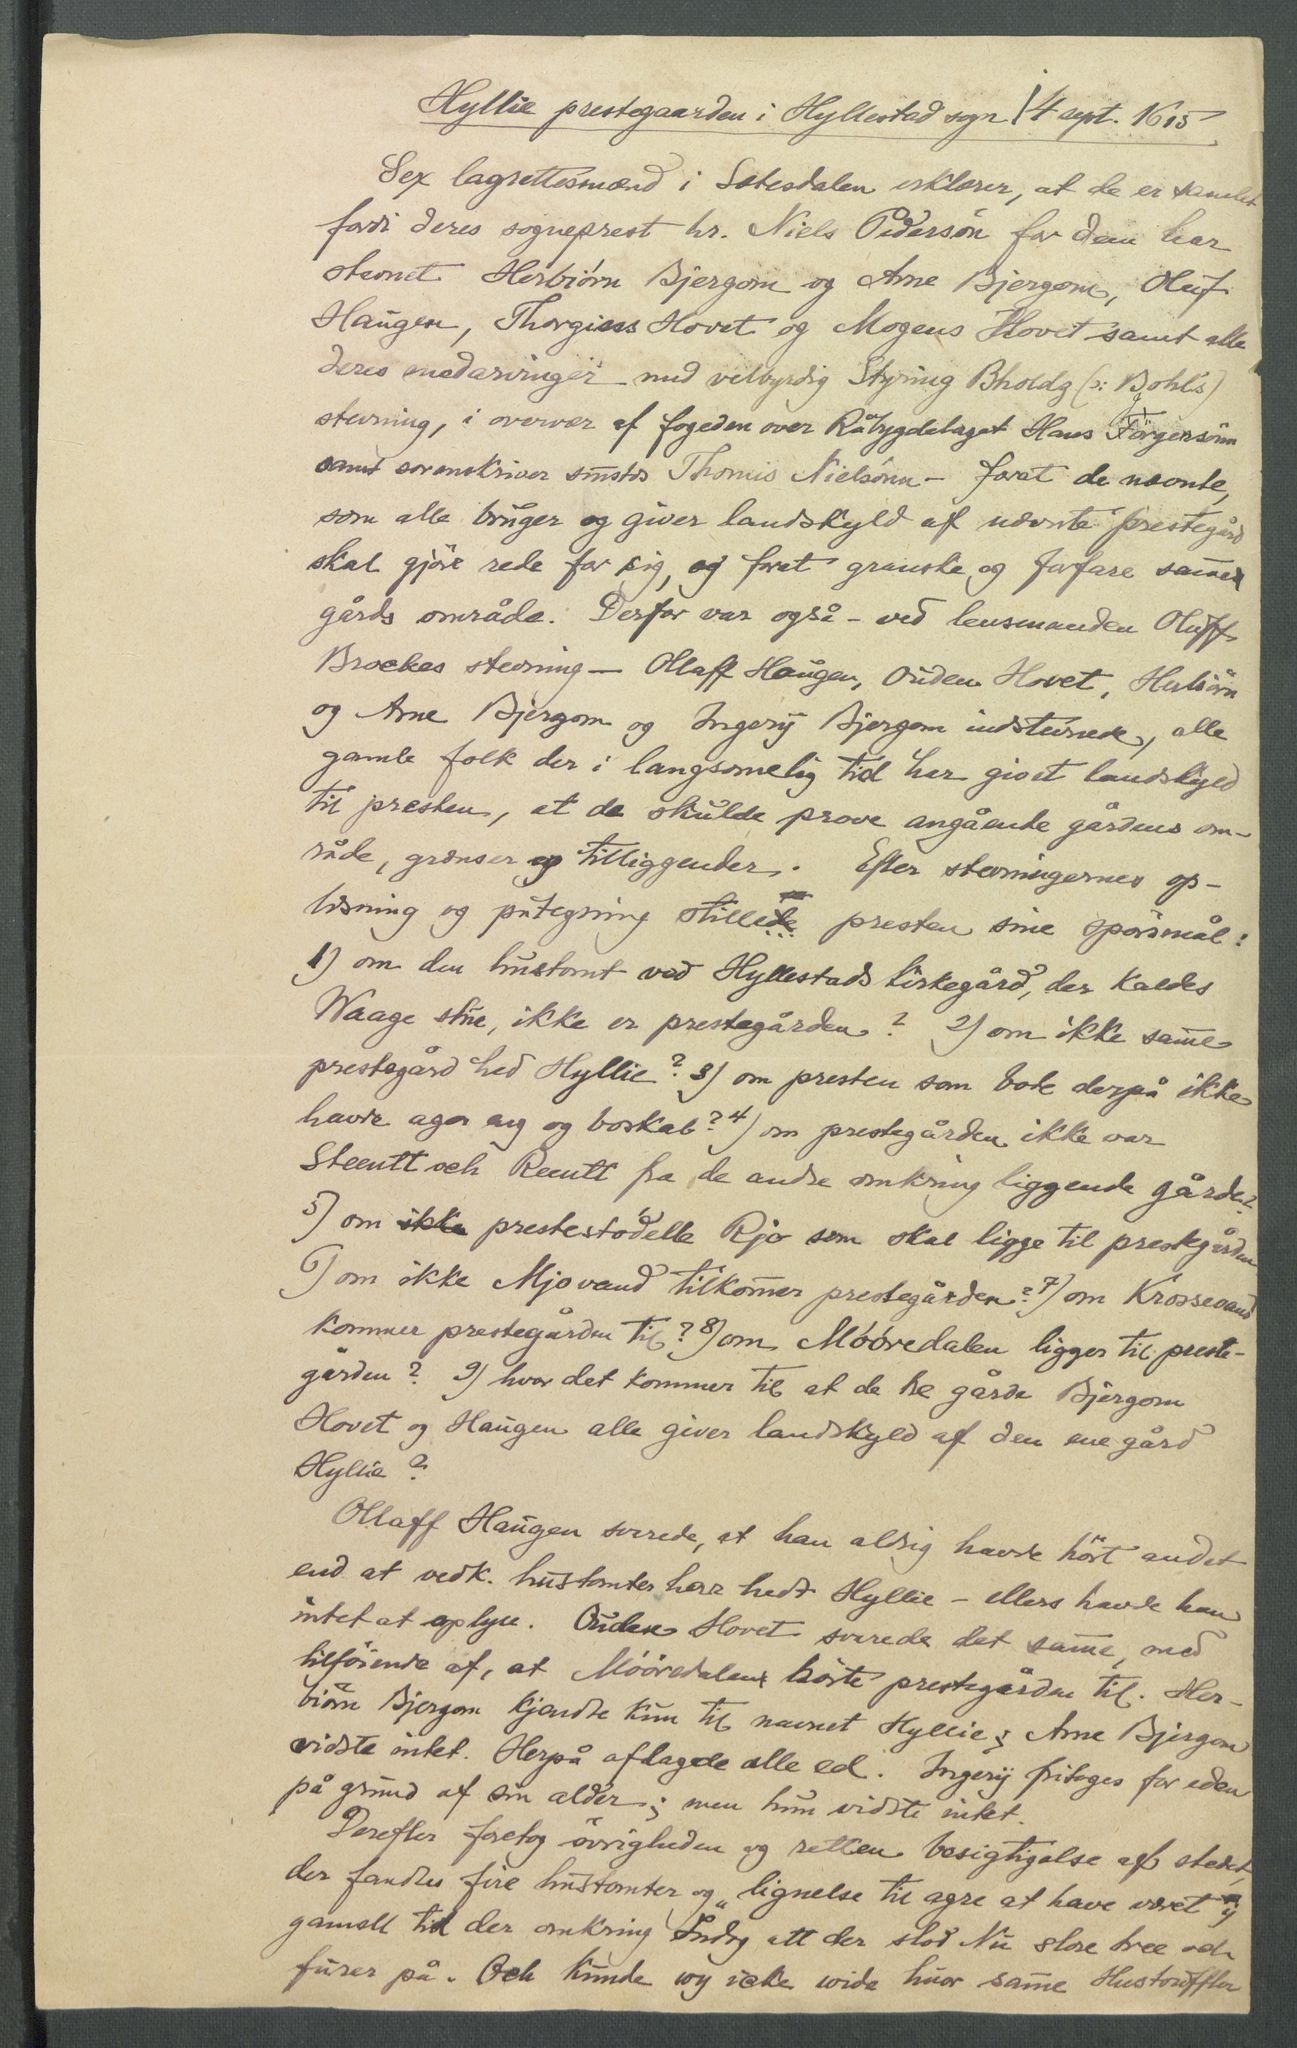 Hyllie prestegaarden i Hyllestad sogn 14 sept. 1615
Sex lagrettesmænd i Sætesdalen erklærer, at de er samlet
fordi deres sogneprest hr. Niels Pedersön for dem har
stevnet Herbiörn Bjergom og Arne Bjergom, Oluf
Haugen, Thorgiuss Hovet og Mogens Hovet samt alle
deres medarvinger med velbyrdig Styring Bholdz (ɔ: Bohl's)
stevning, i overvær af fogeden over Råbygdelaget Hans Jörgensönn
samt sorenskriver smstds Thomis Nielsönn – forat de nævnte,
som alle bruger og giver landskyld af nævnte prestegård
skal gjöre rede for sig, og forat granske og forfare samme
gårds område. Derfor var også – ved lensmanden Oluff
Brockes stevning – Ollaff Haugen, Ouden Hovet, Herbiörn
og Arne Bjergom og Ingerij Bjergom indstevnede, alle
gamle folk der i langsommelig tid har givet landskyld
til presten, at de skulde prove angående gårdens om-
råde, grænser og tilliggender. Efter stevningernes op-
læsning og påtegning stillede presten sine spörsmål:
1) om den hustomt ved Hyllestads kirkegård, der kaldes
Waage stue, ikke er prestegården? 2) om ikke samme
prestegård hed Hyllie? 3) om presten som bode derpå ikke
havde ager eng og boskab? 4) om prestegården ikke var
Steentt och Reentt fra de andre omkring liggende gårde?
5) om ikke prestestödelle Rjo som skal ligge til prestegården
6) om ikke Mjovand tilkommer prestegården? 7) om Krossevand
kommer prestegården til? 8) om Móóredalen ligger til preste-
gården? 9) hvor det kommer til at de tre gårde Bjergom
Hovet og Haugen alle giver landskyld af den ene gård
Hyllie?
Ollaff Haugen svarede, at han aldrig havde hört andet
end at vedk. hustomter her hedt Hyllie – ellers havde han
intet at oplyse. Ouden Hovet svarede det samme, med
tilföiende af, at Móóredalen hörte prestegården til. Her-
biörn Bjergom kjendte kun til navnet Hyllie; Arne Bjergom
vidste intet. Herpå aflagde alle ed. Ingerij fritoges for eden
på grund af sin alder; men hun vidste intet.
Derefter foretog övrigheden og retten besigtigelse af stedet,
der fandtes fire hustomter og "lignelse til agre at have været y
gamell tid der omkring Endog att der stod Nu store tree och
furer på. Och kunde wy icke wide huor samme Hustoufften